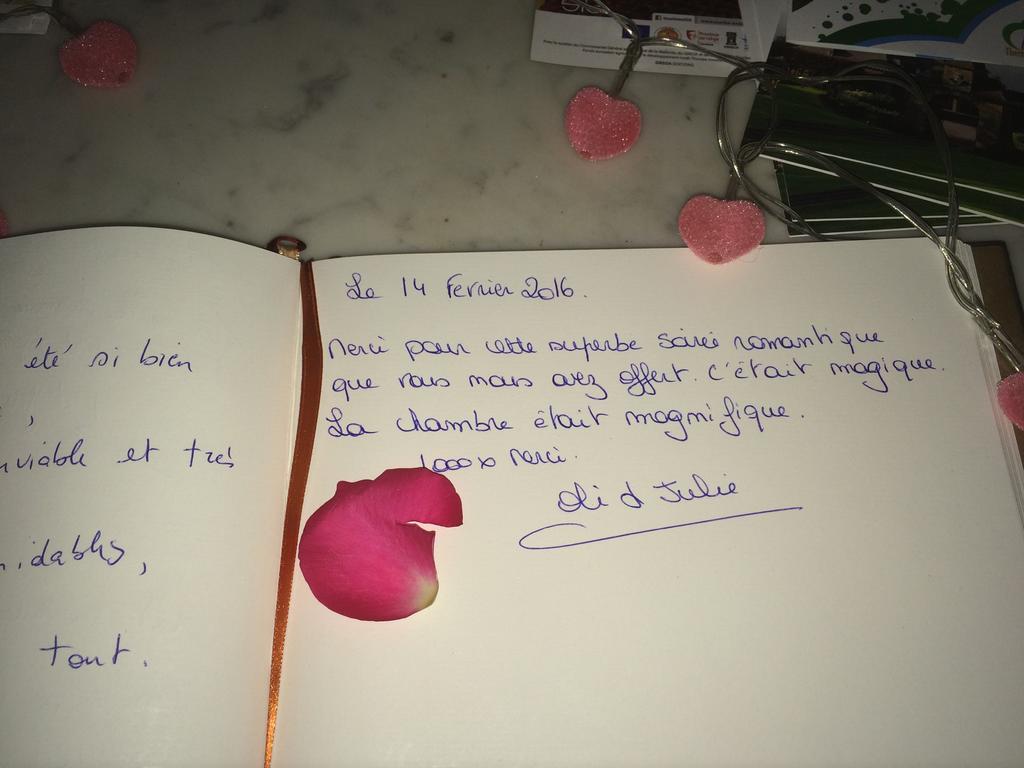 été si bien
,
nviable et très
idables,
tout.
Le 14 Fevrier 2016.
Merci pour cette superbe soirée romantique
que vous nous avez offert. C'était magique.
La chambre était magnifique.
1000x Merci.
Oli & Julie